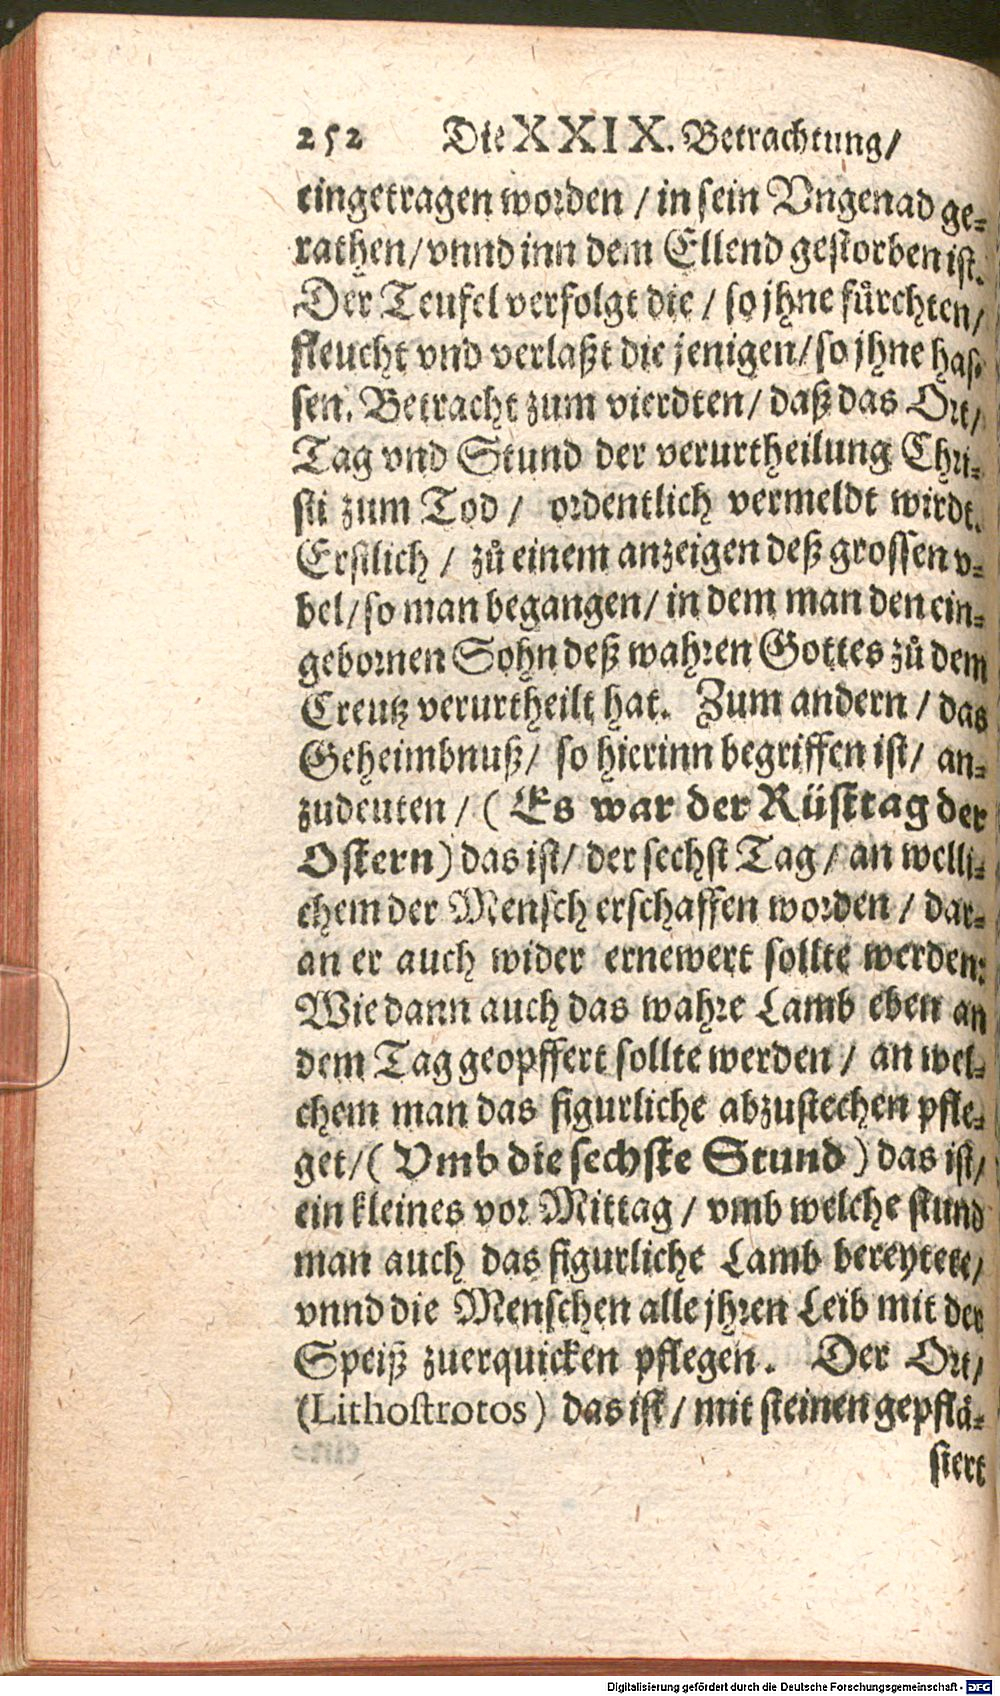 252 Die XXIX. Betrachtung/
eingetragen worden / in sein Vngenad ge-
rathen/ vnnd inn dem Ellend gestorben ist.
Der Teufel verfolgt die / so jhne fürchten/
fleucht vnd verlaßt die jenigen/ so jhne has-
sen. Betracht zum vierdten/ daß das Ort/
Tag vnd Stund der verurtheilung Chri-
sti zum Tod / ordentlich vermeldt wirdt.
Erstlich / zů einem anzeigen deß grossen v-
bel/ so man begangen/ in dem man den ein-
gebornen Sohn deß wahren Gottes zů dem
Creutz verurtheilt hat. Zum andern / das
Geheimbnuß/ so hierinn begriffen ist/ an-
zudeuten / ( Es war der Rüsttag der
Ostern) das ist/ der sechst Tag / an welli-
chem der Mensch erschaffen worden / dar-
an er auch wider ernewert sollte werden:
Wie dann auch das wahre Lamb eben an
dem Tag geopffert sollte werden / an wel-
chem man das figurliche abzustechen pfle-
get/ ( Vmb die sechste Stund ) das ist/
ein kleines vor Mittag / vmb welche stund
man auch das figurliche Lamb bereytete/
vnnd die Menschen alle jhren Leib mit der
Speiß zuerquicken pflegen. Der Ort/
(Lithostrotos) das ist / mit steinen gepflå-
stert
Digitalisierung gefördert durch die Deutsche Forschungsgemeinschaft - DFG